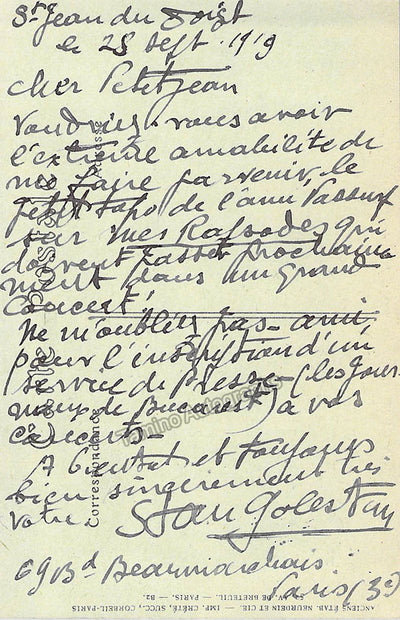 St Jean du Doigt
le 25 Sept. 1919
Cher Petitjean
Voudriez-vous avoir
l'extrême amabilité de
me faire parvenir le
petit topo de l'ami
sur mes Rapsodes qui
doivent passer prochaine
ment dans un grand
concert.
Ne m'oubliez pas - ami,
pour l'inscription d'un
service de Presse - (les jour
naux de Bucarest) à vos
concerts -
A bientôt et toujours
bien sincèrement
votre Stan Golestan
69 Bd Beaumarchais
Paris (3e)
Correspondance
Adresse
Tamino Autographs
ANCIENS ÉTAB. NEURDEIN ET CIE. — IMP. CRÉTÉ, SUCC., CORBEIL-PARIS
AV. DE BRETEUIL. — PARIS. — B2.